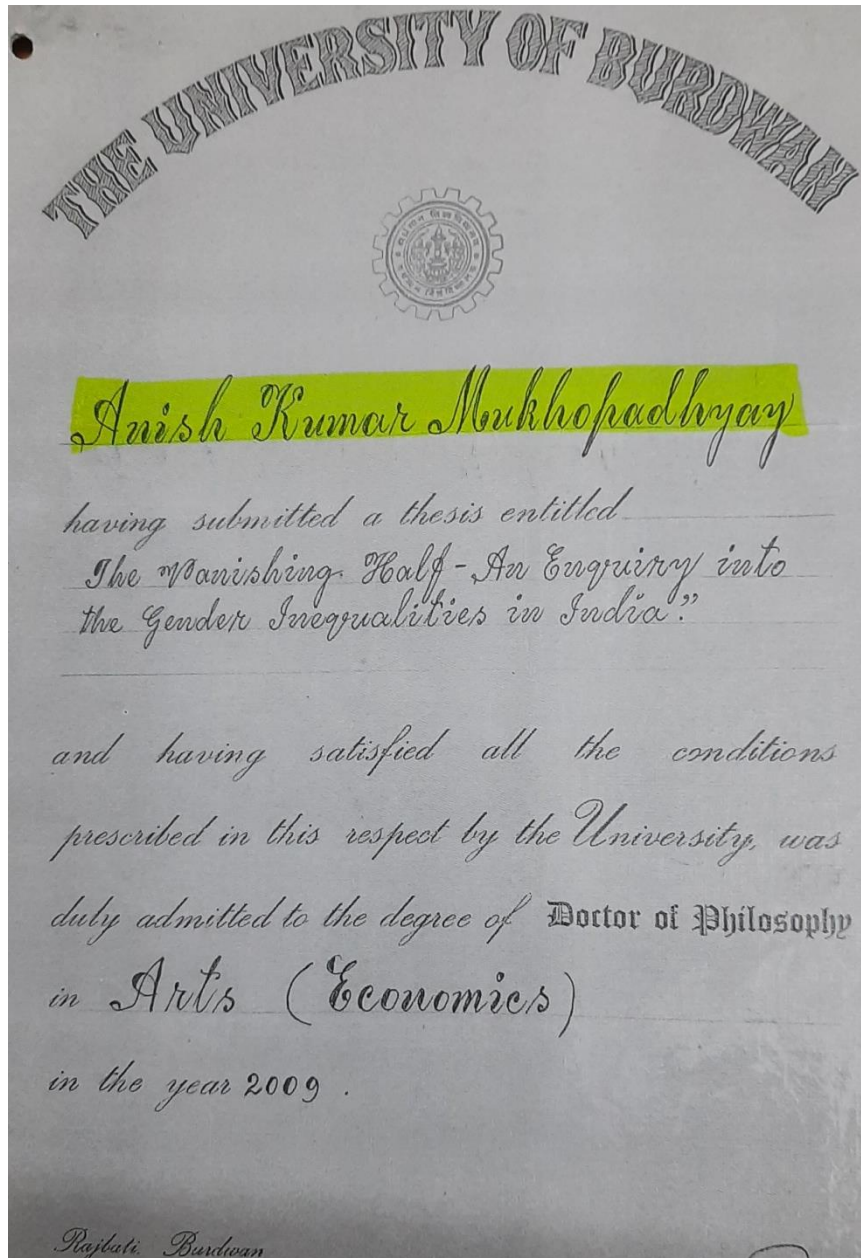 THE UNIVERSITY OF BURDWAN
Anish Kumar Mukhopadhyay
having submitted a thesis entitled
The Vanishing Half - An Enquiry into
the Gender Inequalities in India."
and having satisfied all the conditions
prescribed in this respect by the University, was
duly admitted to the degree of Doctor of Philosophy
in Arts (Economics)
in the year 2009 .
Rajbati, Burdwan